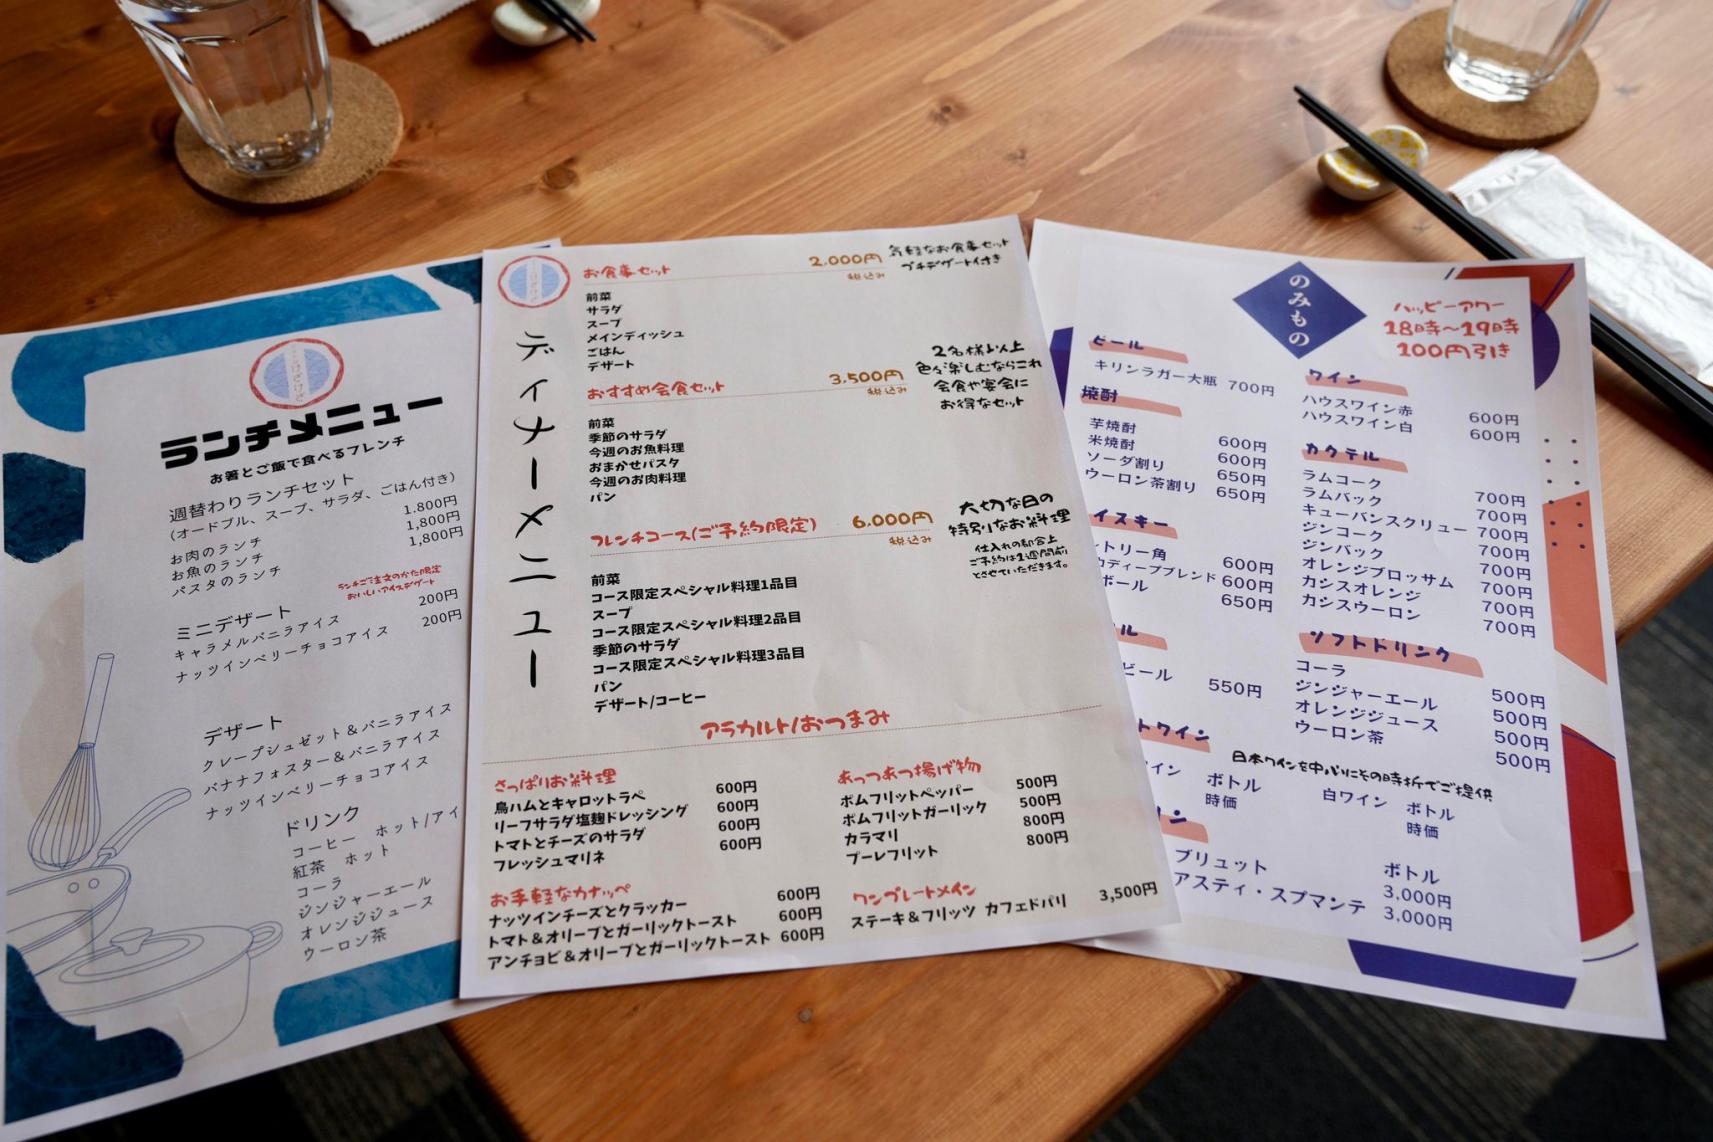 ランチメニュー
お箸とご飯で食べるフレンチ
週替わりランチセット
(オードブル、スープ、サラダ、ごはん付き)
お肉のランチ 1.800円
お魚のランチ 1,800円
パスタのランチ 1,800円
ランチご注文のかた限定
おいしいアイスデザート
ミニデザート
キャラメルバニラアイス 200円
ナッツインベリーチョコアイス 200円
デザート
クレープシュゼット&バニラアイス
バナナフォスター&バニラアイス
ナッツインベリーチョコアイス
ドリンク
コーヒー ホット/アイ
紅茶 ホット
コーラ
ジンジャーエール
オレンジジュース
ウーロン茶
ディナーメニュー
お食事セット 2.000円
税込み
気軽なお食事セット
プチデザート付き
前菜
サラダ
スープ
メインディッシュ
ごはん
デザート
おすすめ会食セット 3,500円
税込み
2名様以上
色々楽しむならこれ
会食や宴会に
お得なセット
前菜
季節のサラダ
今週のお魚料理
おまかせパスタ
今週のお肉料理
パン
フレンチコース(ご予約限定) 6,000円
税込み
大切な日の
特別なお料理
仕入れの都合上
ご予約は1週間前
とさせていただきます。
前菜
コース限定スペシャル料理1品目
スープ
コース限定スペシャル料理2品目
季節のサラダ
コース限定スペシャル料理3品目
パン
デザート/コーヒー
アラカルト/おつまみ
さっぱりお料理
鳥ハムとキャロットラペ 600円
リーフサラダ塩麹ドレッシング 600円
トマトとチーズのサラダ 600円
フレッシュマリネ 600円
お手軽なカナッペ
ナッツインチーズとクラッカー 600円
トマト&オリーブとガーリックトースト 600円
アンチョビ&オリーブとガーリックトースト 600円
あっつあつ揚げ物
ポムフリットペッパー 500円
ポムフリットガーリック 500円
カラマリ 800円
プーレフリット 800円
ワンプレートメイン
ステーキ&フリッツ カフェドパリ 3,500円
のみもの
ハッピーアワー
18時~19時
100円引き
ビール
キリンラガー大瓶 700円
焼酎
芋焼酎 600円
米焼酎 600円
ソーダ割り 650円
ウーロン茶割り 650円
イスキー
トリー角 600円
カディープブレンド 600円
ボール 650円
ル
ビール 550円
トワイン
日本ワインを中心にその時折でご提供
イン ボトル
時価
白ワイン ボトル
時価
ン
ブリュット ボトル
3,000円
アスティ・スプマンテ 3,000円
ワイン
ハウスワイン赤 600円
ハウスワイン白 600円
カクテル
ラムコーク 700円
ラムバック 700円
キューバンスクリュー 700円
ジンコーク 700円
ジンバック 700円
オレンジブロッサム 700円
カシスオレンジ 700円
カシスウーロン 700円
ソフトドリンク
コーラ 500円
ジンジャーエール 500円
オレンジジュース 500円
ウーロン茶 500円